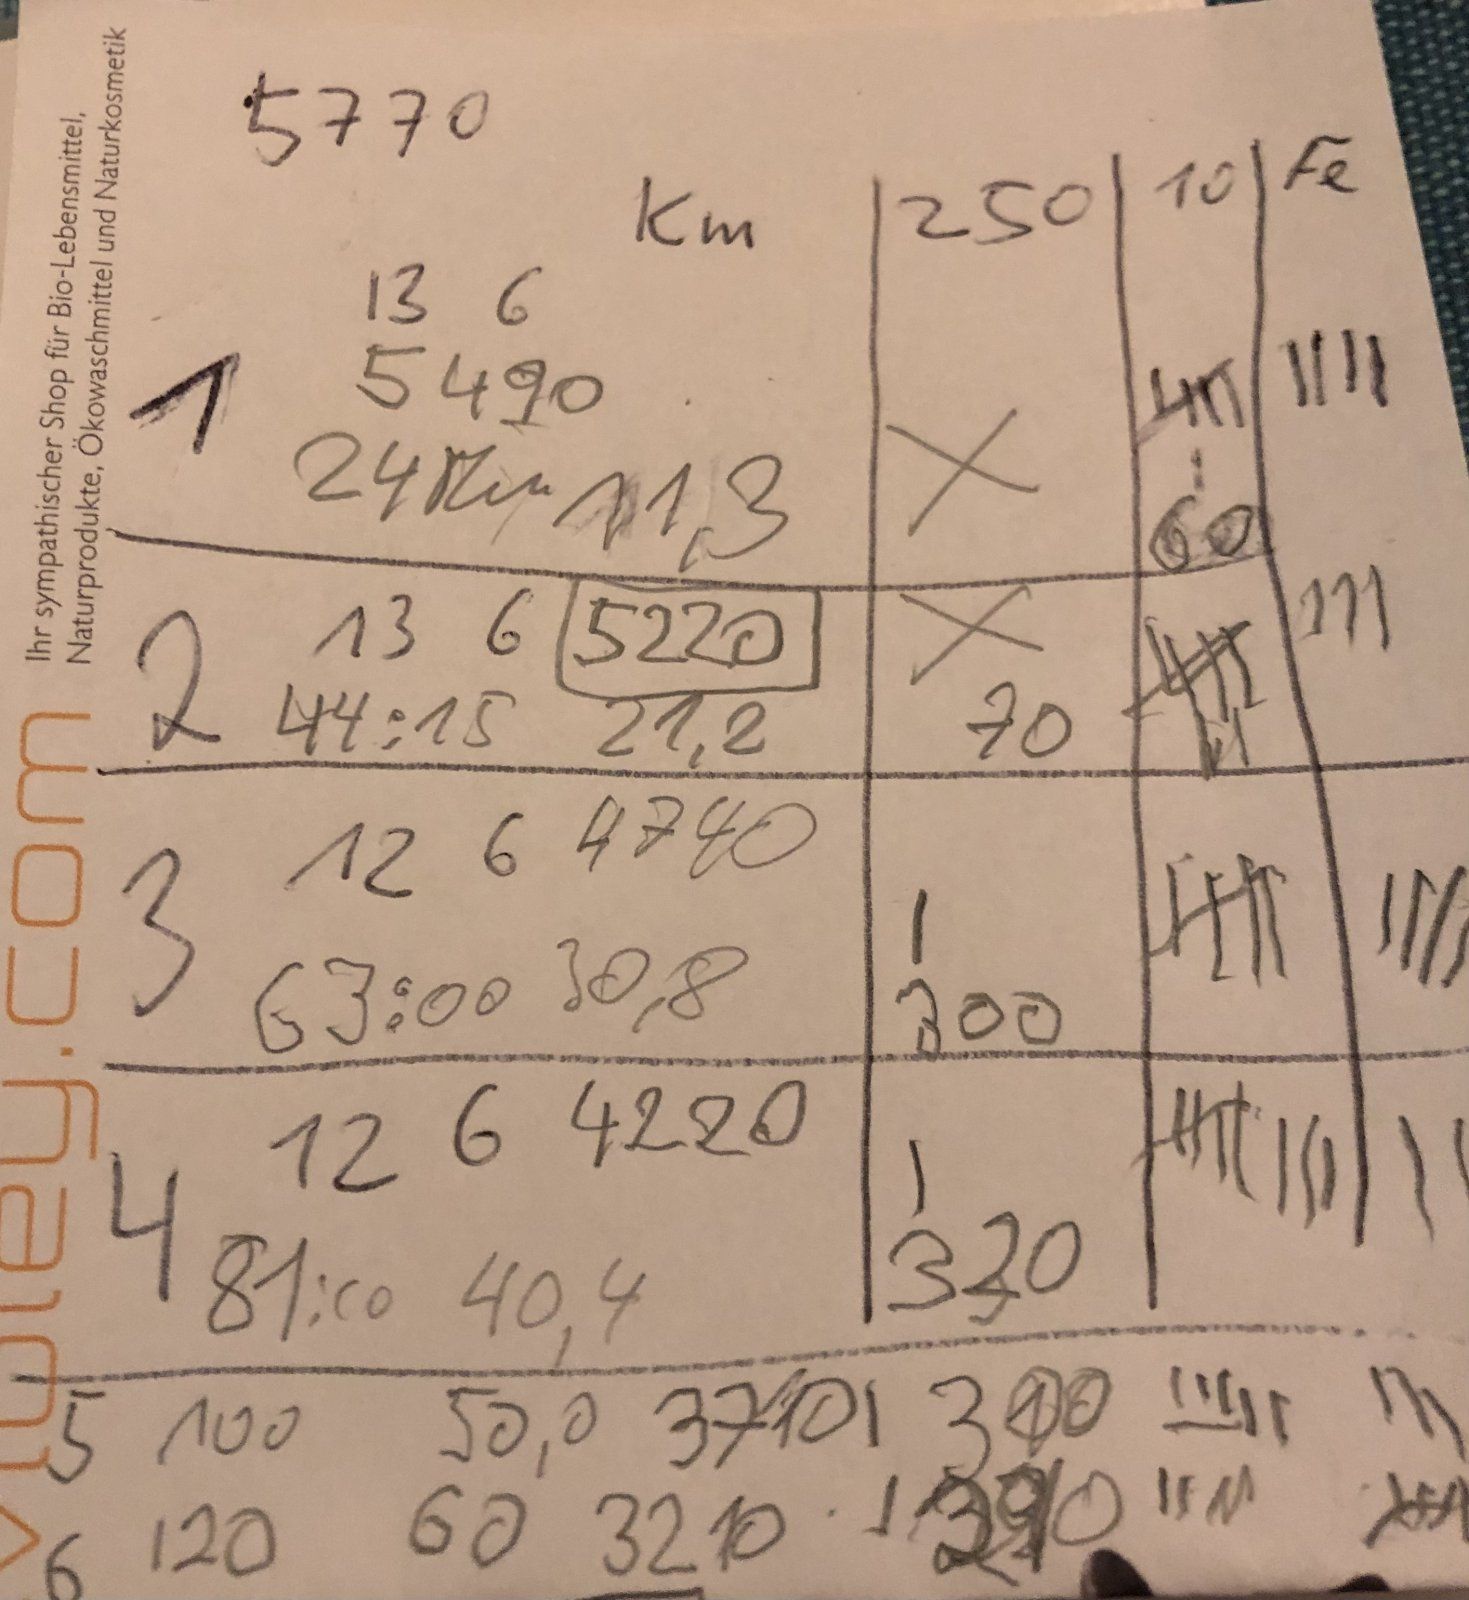 Ihr sympathischer Shop für Bio-Lebensmittel,
Naturprodukte, Ökowaschmittel und Naturkosmetik
5770
Km 250 10 Fe
13 6
1 5490 X
24 Km 11,3 60
2 13 6 5220 X
44:15 21,2 70
3 12 6 4740
63:00 30,8 300
4 12 6 4220
81:00 40,4 320
5 100 50,0 3710 300
6 120 60 3210
.com